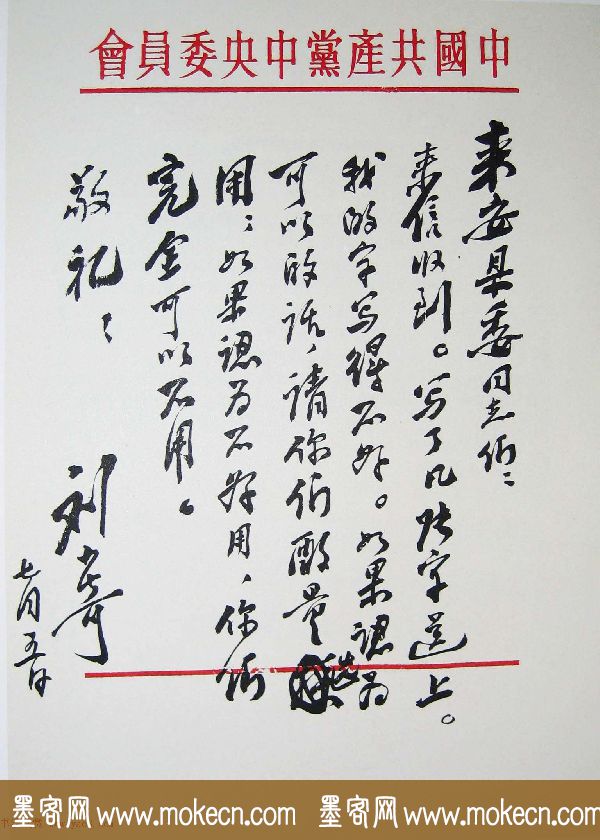 中國共產黨中央委員會
来安县委同志们：
来信收到。写了几张字送上。
我的字写得不好。如果認为
可以的話，請你们酌量
用；如果認为不好用，你们
完全可以不用。
敬礼！
刘少奇
七月五日
墨客网 www.mokecn.com 墨客网 www.mokecn.com